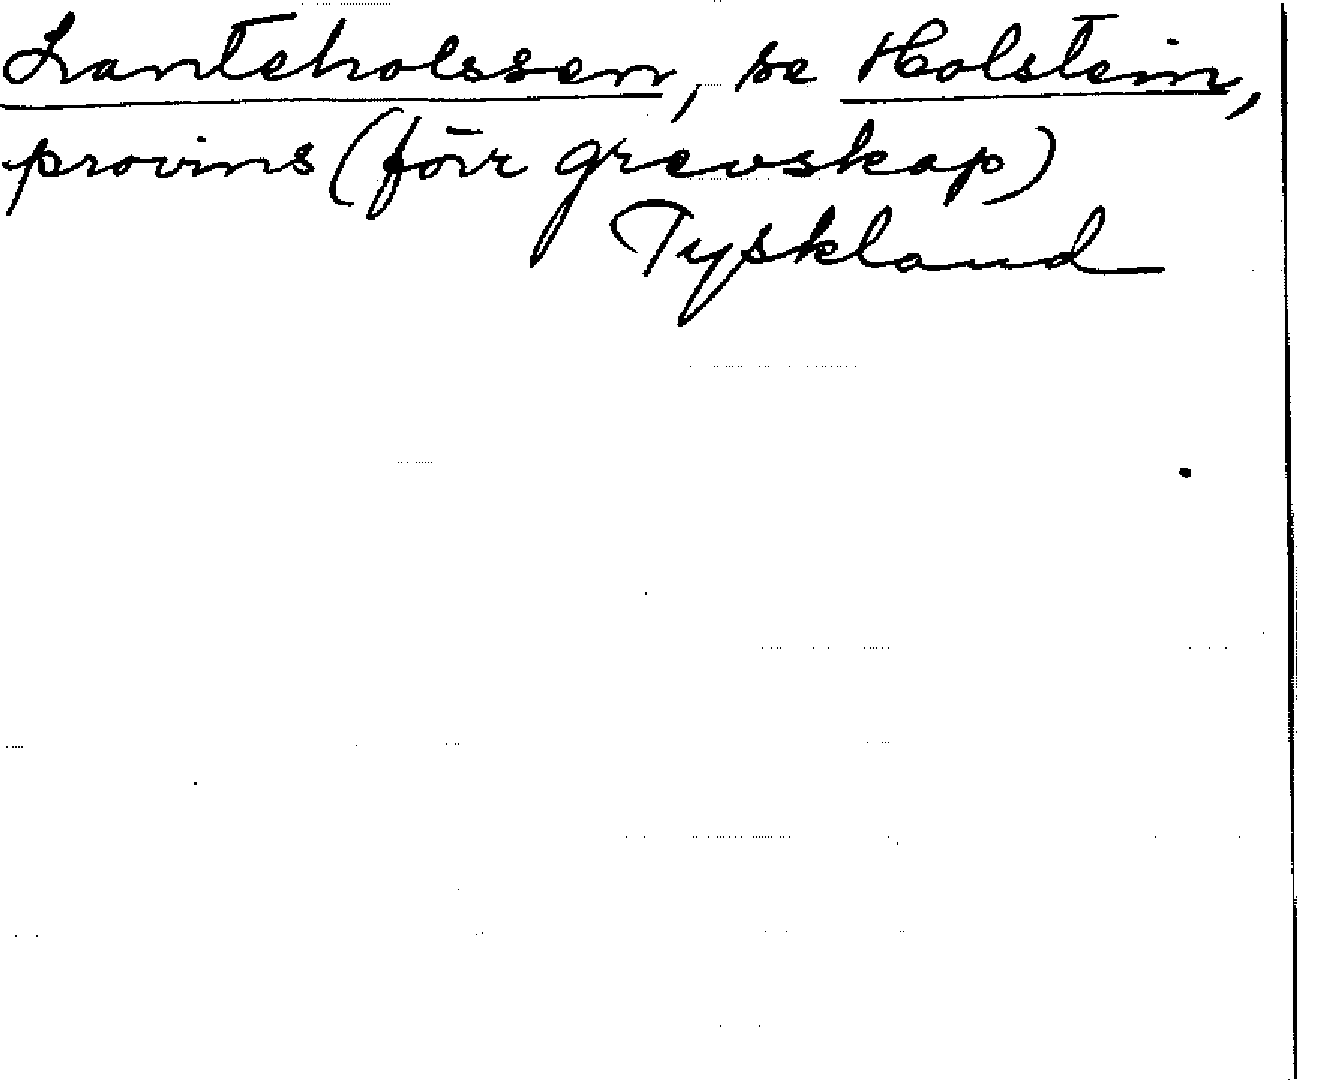 Lanteholssen, se Holstein,
provins (förr grevskap)
Tyskland